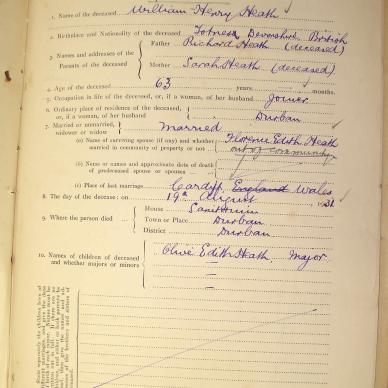 1. Name of the deceased William Henry Heath
2. Birthplace and Nationality of the deceased Totness Devonshire British
3. Names and addresses of the Parents of the deceased
Father Richard Heath (deceased)
Mother Sarah Heath (deceased)
4. Age of the deceased 63 years, months.
5. Occupation in life of the deceased, or, if a woman, of her husband Joiner
6. Ordinary place of residence of the deceased, or, if a woman, of her husband Durban
7. Married or unmarried, widower or widow Married
(a) Name of surviving spouse (if any) and whether married in community of property or not Florence Edith Heath
out of community
(b) Name or names and approximate dates of death of predeceased spouse or spouses
(c) Place of last marriage Cardiff, England Wales
8. The day of the decease: on 19th August 1931
9. Where the person died
House Sanitorium
Town or Place Durban
District Durban
10. Names of children of deceased and whether majors or minors
Olive Edith Heath Major